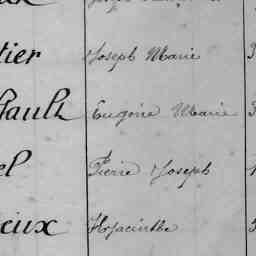 tier Joseph Marie
Eugène Marie
el Pierre Joseph
eux Hyacinthe